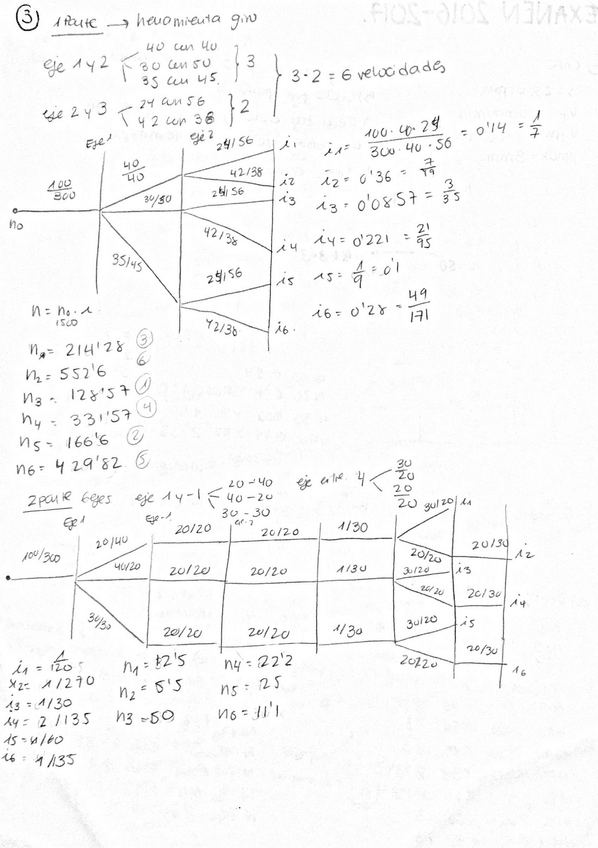 ③ 1 Parte → herramienta giro
eje 1 y 2
40 con 40
30 con 50
35 con 45.
} 3
eje 2 y 3
24 con 56
42 con 38
} 2
3·2 = 6 velocidades
Eje 1
eje 2
n0
100/300
40/40
30/50
35/45
24/56
42/38
24/56
42/38
24/56
42/38
i1
i2
i3
i4
i5
i6.
i1 = 100·40·24 / 300·40·56 = 0'14 = 1/7
i2 = 0'36 = 7/19
i3 = 0'0857 = 3/35
i4 = 0'221 = 21/95
i5 = 1/9 = 0'1
i6 = 0'28 = 49/171
n = n0 · i
1500
n1 = 214'28 ③
n2 = 552'6 ⑥
n3 = 128'57 ①
n4 = 331'57 ④
n5 = 166'6 ②
n6 = 429'82 ⑤
2 parte 6 ejes eje 1 y -1
20-40
40-20
30-30
eje entre. 4
30/20
20/20
Eje 1
Eje-1
100/300
20/40
40/20
30/30
20/20 20/20 1/30
20/20 20/20 1/30
20/20 20/20 1/30
30/20 i1
20/20 20/30 i2
30/20 i3
20/20 20/30 i4
30/20 i5
20/20 20/30 i6
i2 = 1/270
i3 = 1/30
i4 = 2/135
i5 = 1/60
i6 = 1/135
n1 = 12'5
n2 = 5'5
n3 = 50
n4 = 22'2
n5 = 25
n6 = 11'1